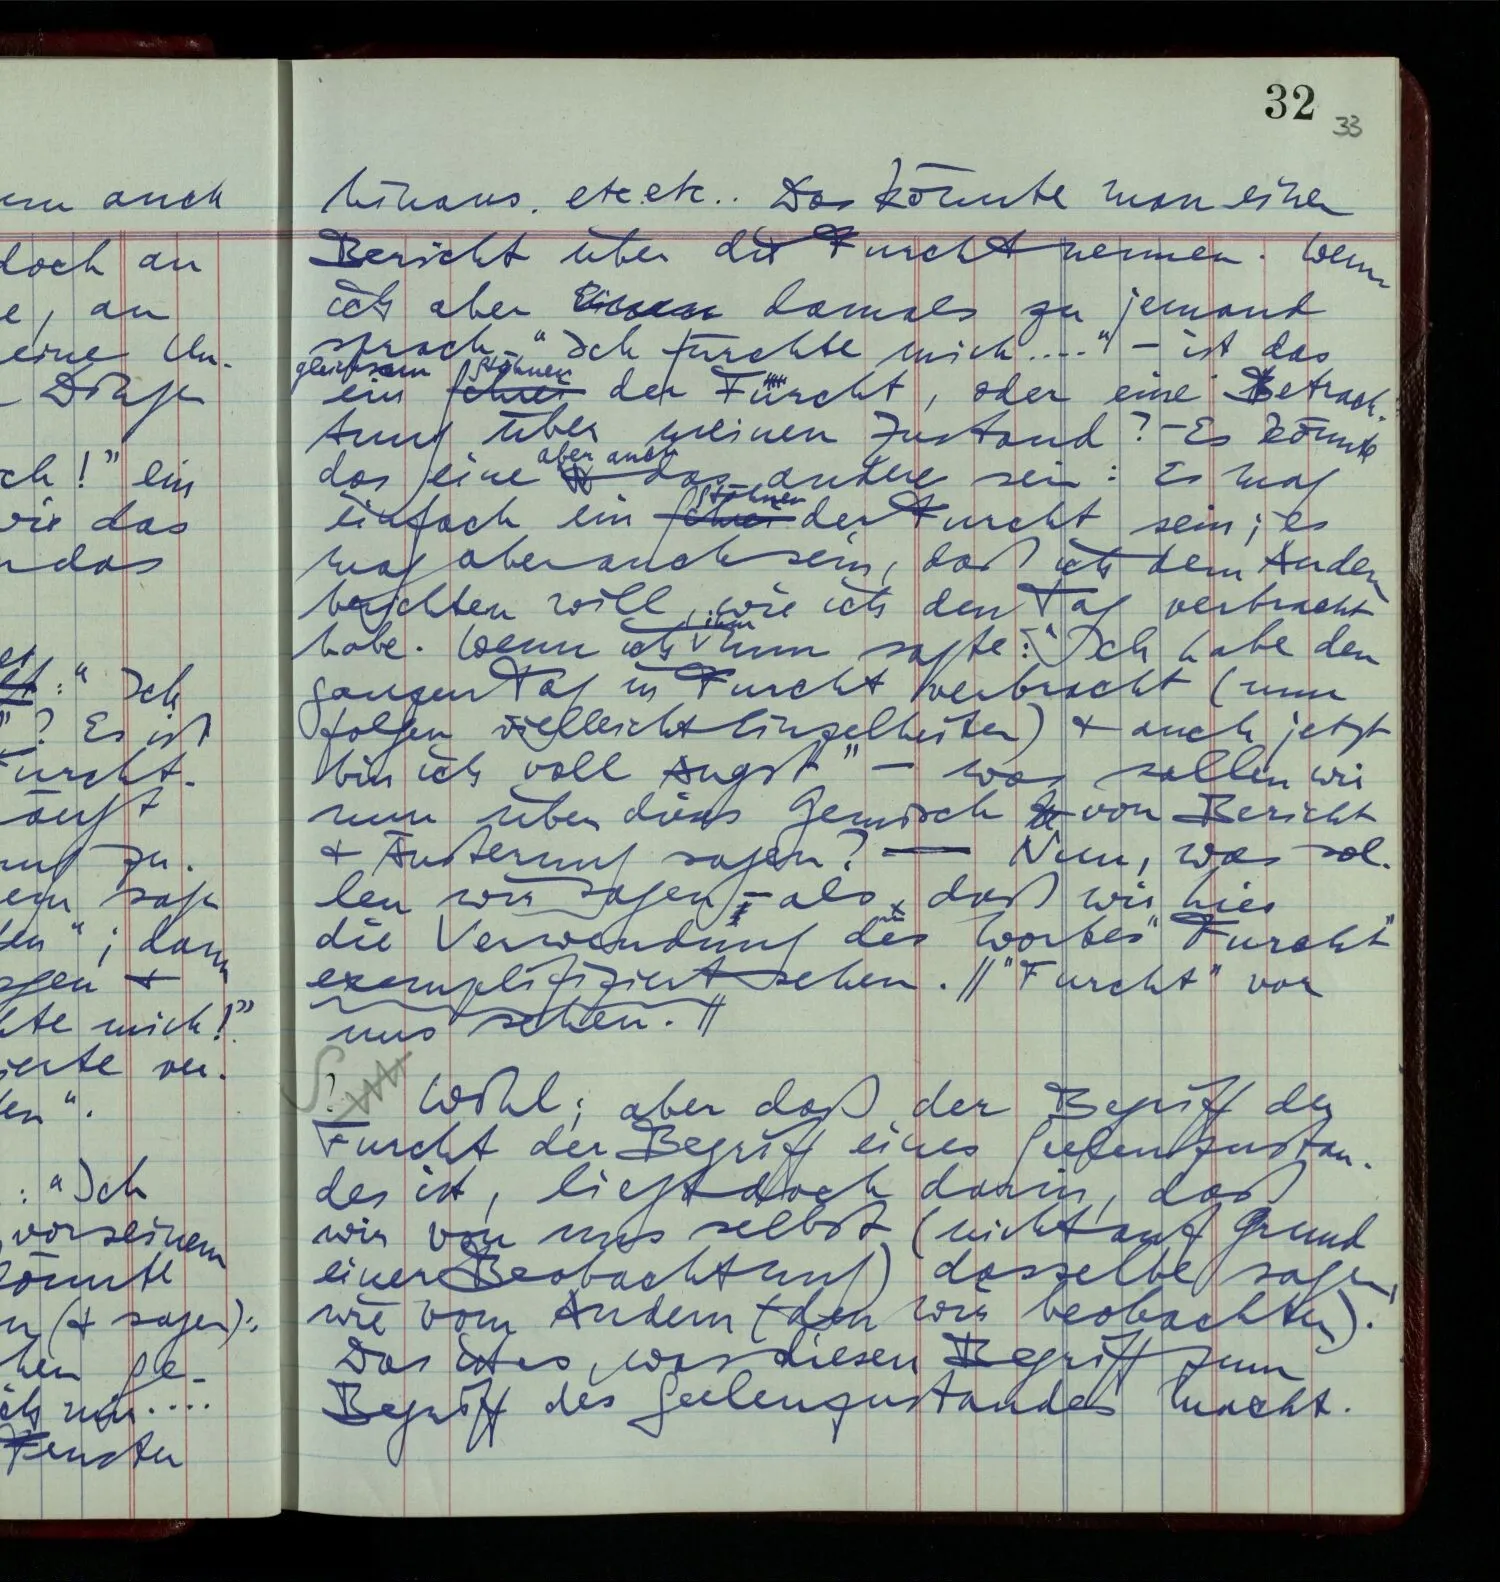 um auch
doch an
e, an
eine Un-
Dinge
ch!" ein
wie das
das
: "Ich
"? Es ist
Furcht.
äuft
ung zu.
sage
en"; dann
sagen +
hte mich!"
ierte ver-
en".
: "Ich
vor seinem
könnte
n (+ sagen):
hen ge-
ich nun....
Fenster
32
33
hinaus. etc. etc.. Das könnte man einen
Bericht über die Furcht nennen. Wenn
ich aber damals zu jemand
sprach "Ich fürchte mich...." – ist das
gleichsam Stöhnen
ein Schrei der Furcht, oder eine Betrach-
tung über meinen Zustand? – Es könnte
aber auch
das eine das andere sein: Es mag
Stöhnen
einfach ein Schrei der Furcht sein; es
mag aber auch sein, daß ich dem Andern
berichten will, wie ich den Tag verbracht
ihm
habe. Wenn ich nun sagte: "Ich habe den
ganzen Tag in Furcht verbracht (nun
folgen vielleicht Einzelheiten) + auch jetzt
bin ich voll Angst" – was sollen wir
nun über dies Gemisch von Bericht
+ Äußerung sagen? — Nun, was sol-
len wir sagen – als, daß wir hier
die Verwendung des Wortes "Furcht"
exemplifiziert sehen. // "Furcht" vor
uns sehen. //
S
? Wohl; aber daß der Begriff der
Furcht der Begriff eines Seelenzustan-
des ist, liegt doch darin, daß
wir von uns selbst (nicht auf Grund
einer Beobachtung) dasselbe sagen,
wie vom Andern (den wir beobachten).
Das ist es, was diesen Begriff zum
Begriff des Seelenzustandes macht.